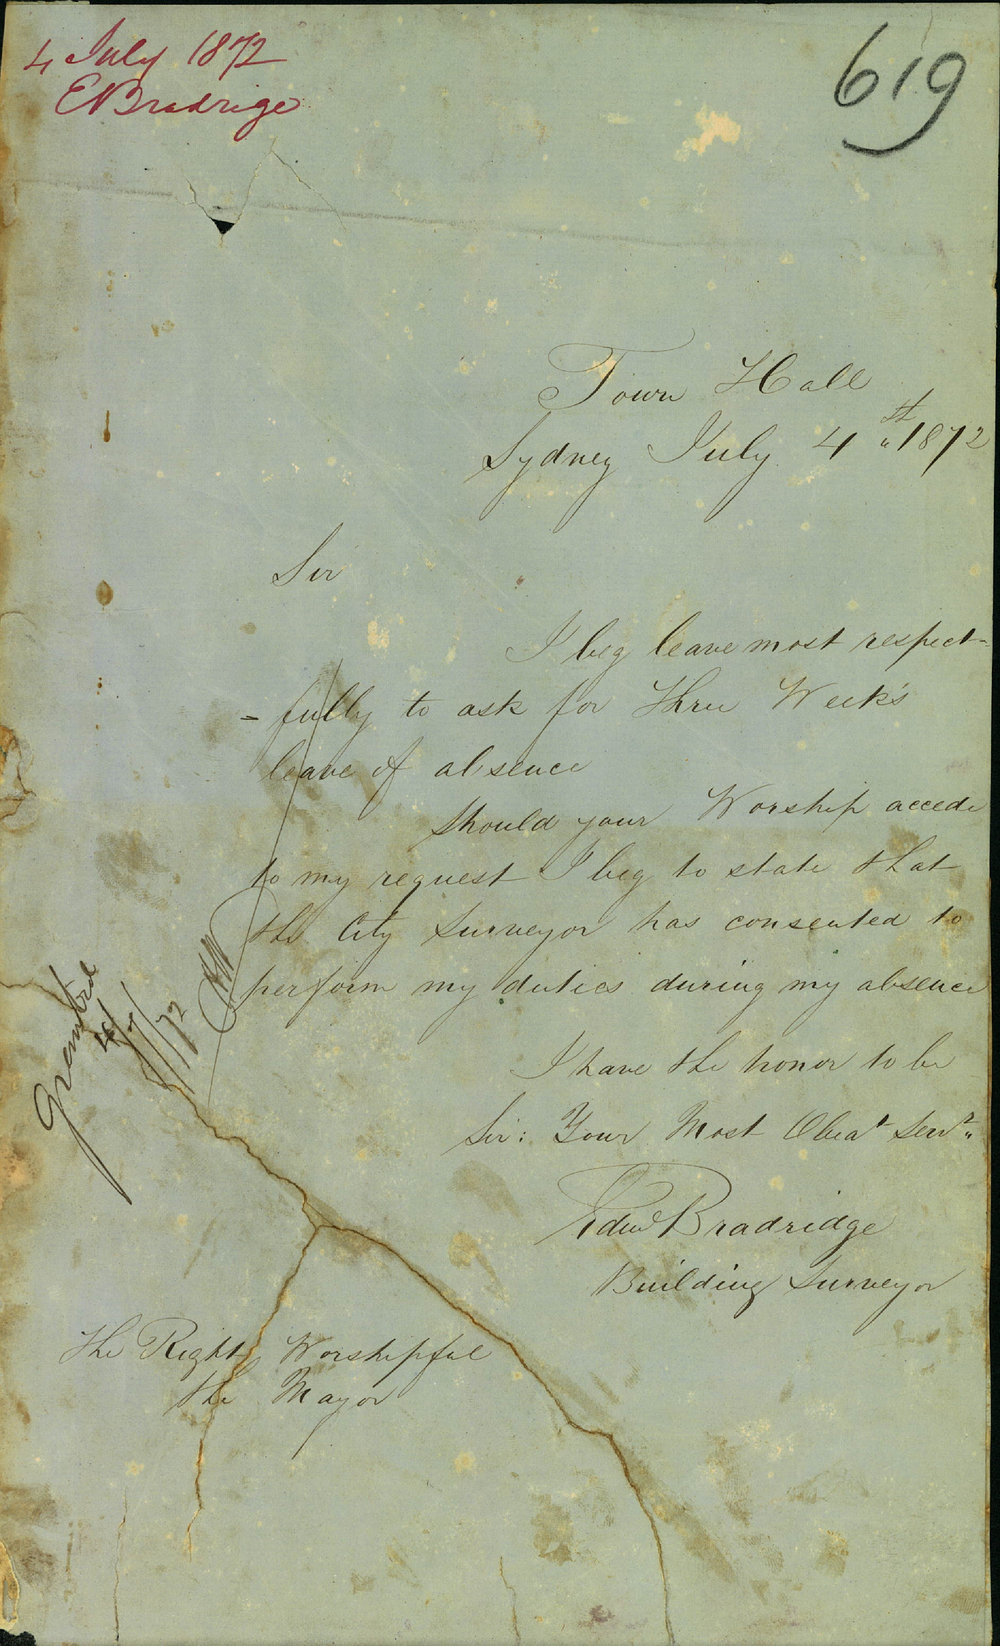 4 July 1872
E Bradrige
619
Town Hall
Sydney July 4th 1872
Sir
I beg leave most respect-
- fully to ask for Three Week's
leave of absence
Should your Worship accede
to my request I beg to state that
the City Surveyor has consented to
perform my duties during my absence
I have the honor to be
Sir: Your Most Obedt Servt
Edwd Bradridge
Building Surveyor
The Right Worshipful
the Mayor
Granted
4/7/72